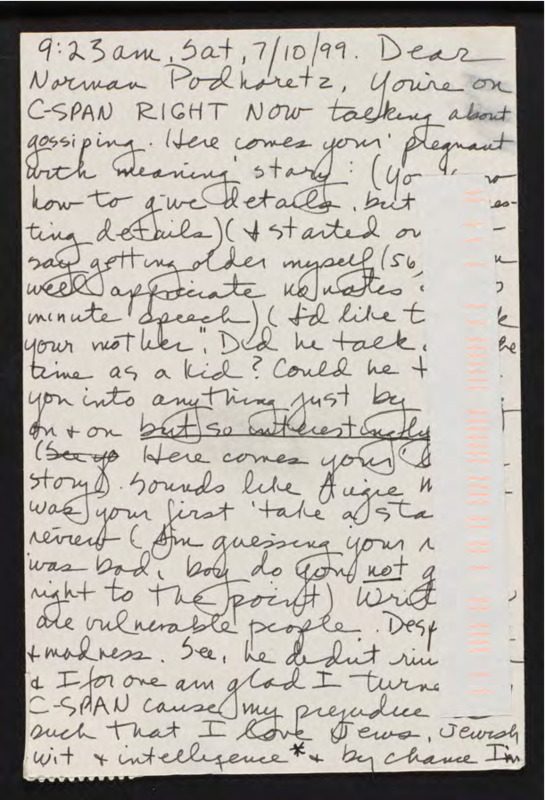 9:23am, Sat, 7/10/99. Dear
Norman Podhoretz, You're on
C-SPAN RIGHT NOW talking about
gossiping. Here comes your 'pregnant
with meaning' story: (
how to give details, but
ting details)(
say getting older myself (56,
well appreciate no notes
minute speech)( I'd like t
your mother". Did he talk
time as a kid? Could he t
you into anything just by
on + on but so interestingly
Here comes your
story). Sounds like Augie M
was your first 'take a sta
review ( Am guessing your r
was bad, boy do you not g
right to the point) Writ
are vulnerable people. Desp
+ madness. See, he didnt
+ I for one am glad I turne
C-SPAN cause my prejudice
such that I love Jews, Jewish
wit + intelligence * + by chance I'm